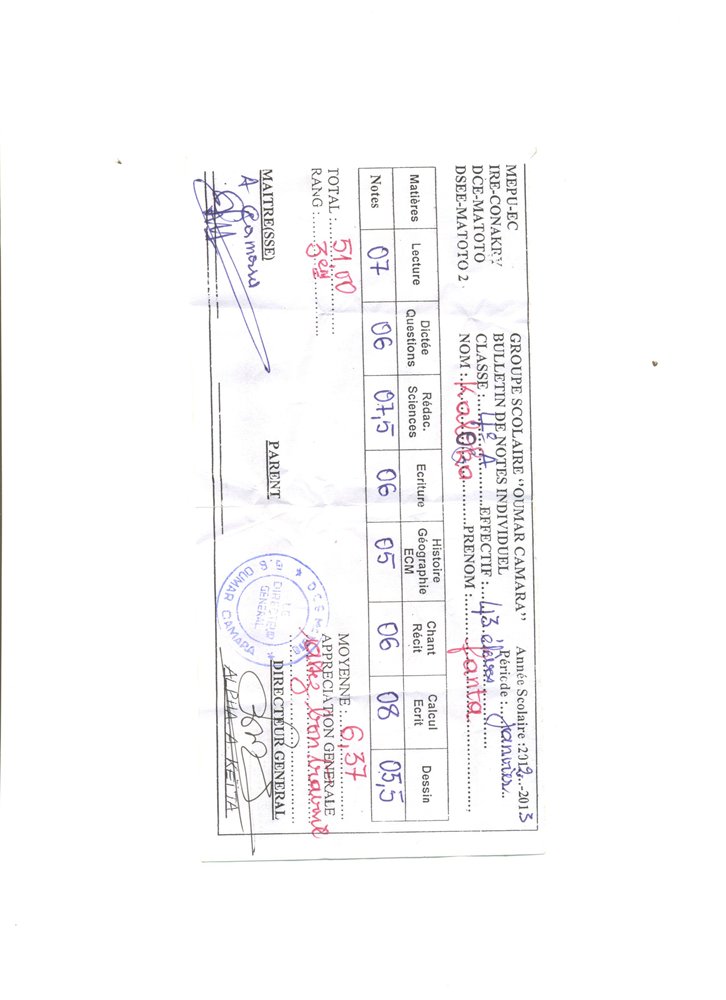 MEPU-EC
IRE-CONAKRY
DCE-MATOTO
DSEE-MATOTO 2
GROUPE SCOLAIRE ‘’OUMAR CAMARA’’ Année Scolaire :2012-2013
BULLETIN DE NOTES INDIVIDUEL Période : Janvier
CLASSE : 4è A EFFECTIF : 43 élèves
NOM : PRENOM : fanta
Matières Lecture Dictée Questions Rédac. Sciences Ecriture Histoire Géographie ECM Chant Récit Calcul Ecrit Dessin
Notes 07 06 07,5 06 05 06 08 05,5
TOTAL : 51.00 MOYENNE : 6,37
RANG : 3èm APPRECIATION GENERALE
assez bon travail
MAITRE(SSE) PARENT DIRECTEUR GENERAL
LE DIRECTEUR GENERAL
G.S OUMAR CAMARA
ALPHA A KEITA